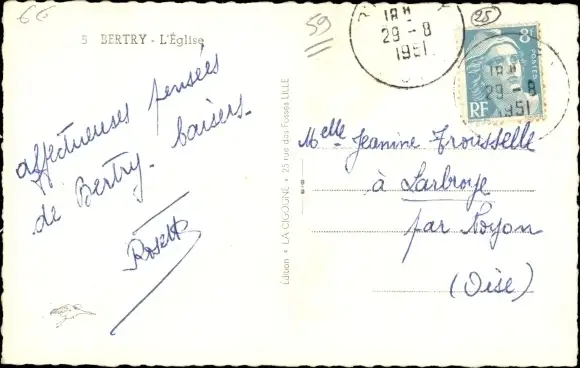 66
59
25
5 BERTRY - L'Église
18H
29-8
1951
8F
POSTES
RF
18H
29-8
1951
affectueuses pensées
de Bertry. baisers.
Rosette
Édition • LA CIGOGNE • 25 rue des Fossés LILLE
Melle Jeanine Trousselle
à Larbroye
par Noyon
(Oise)